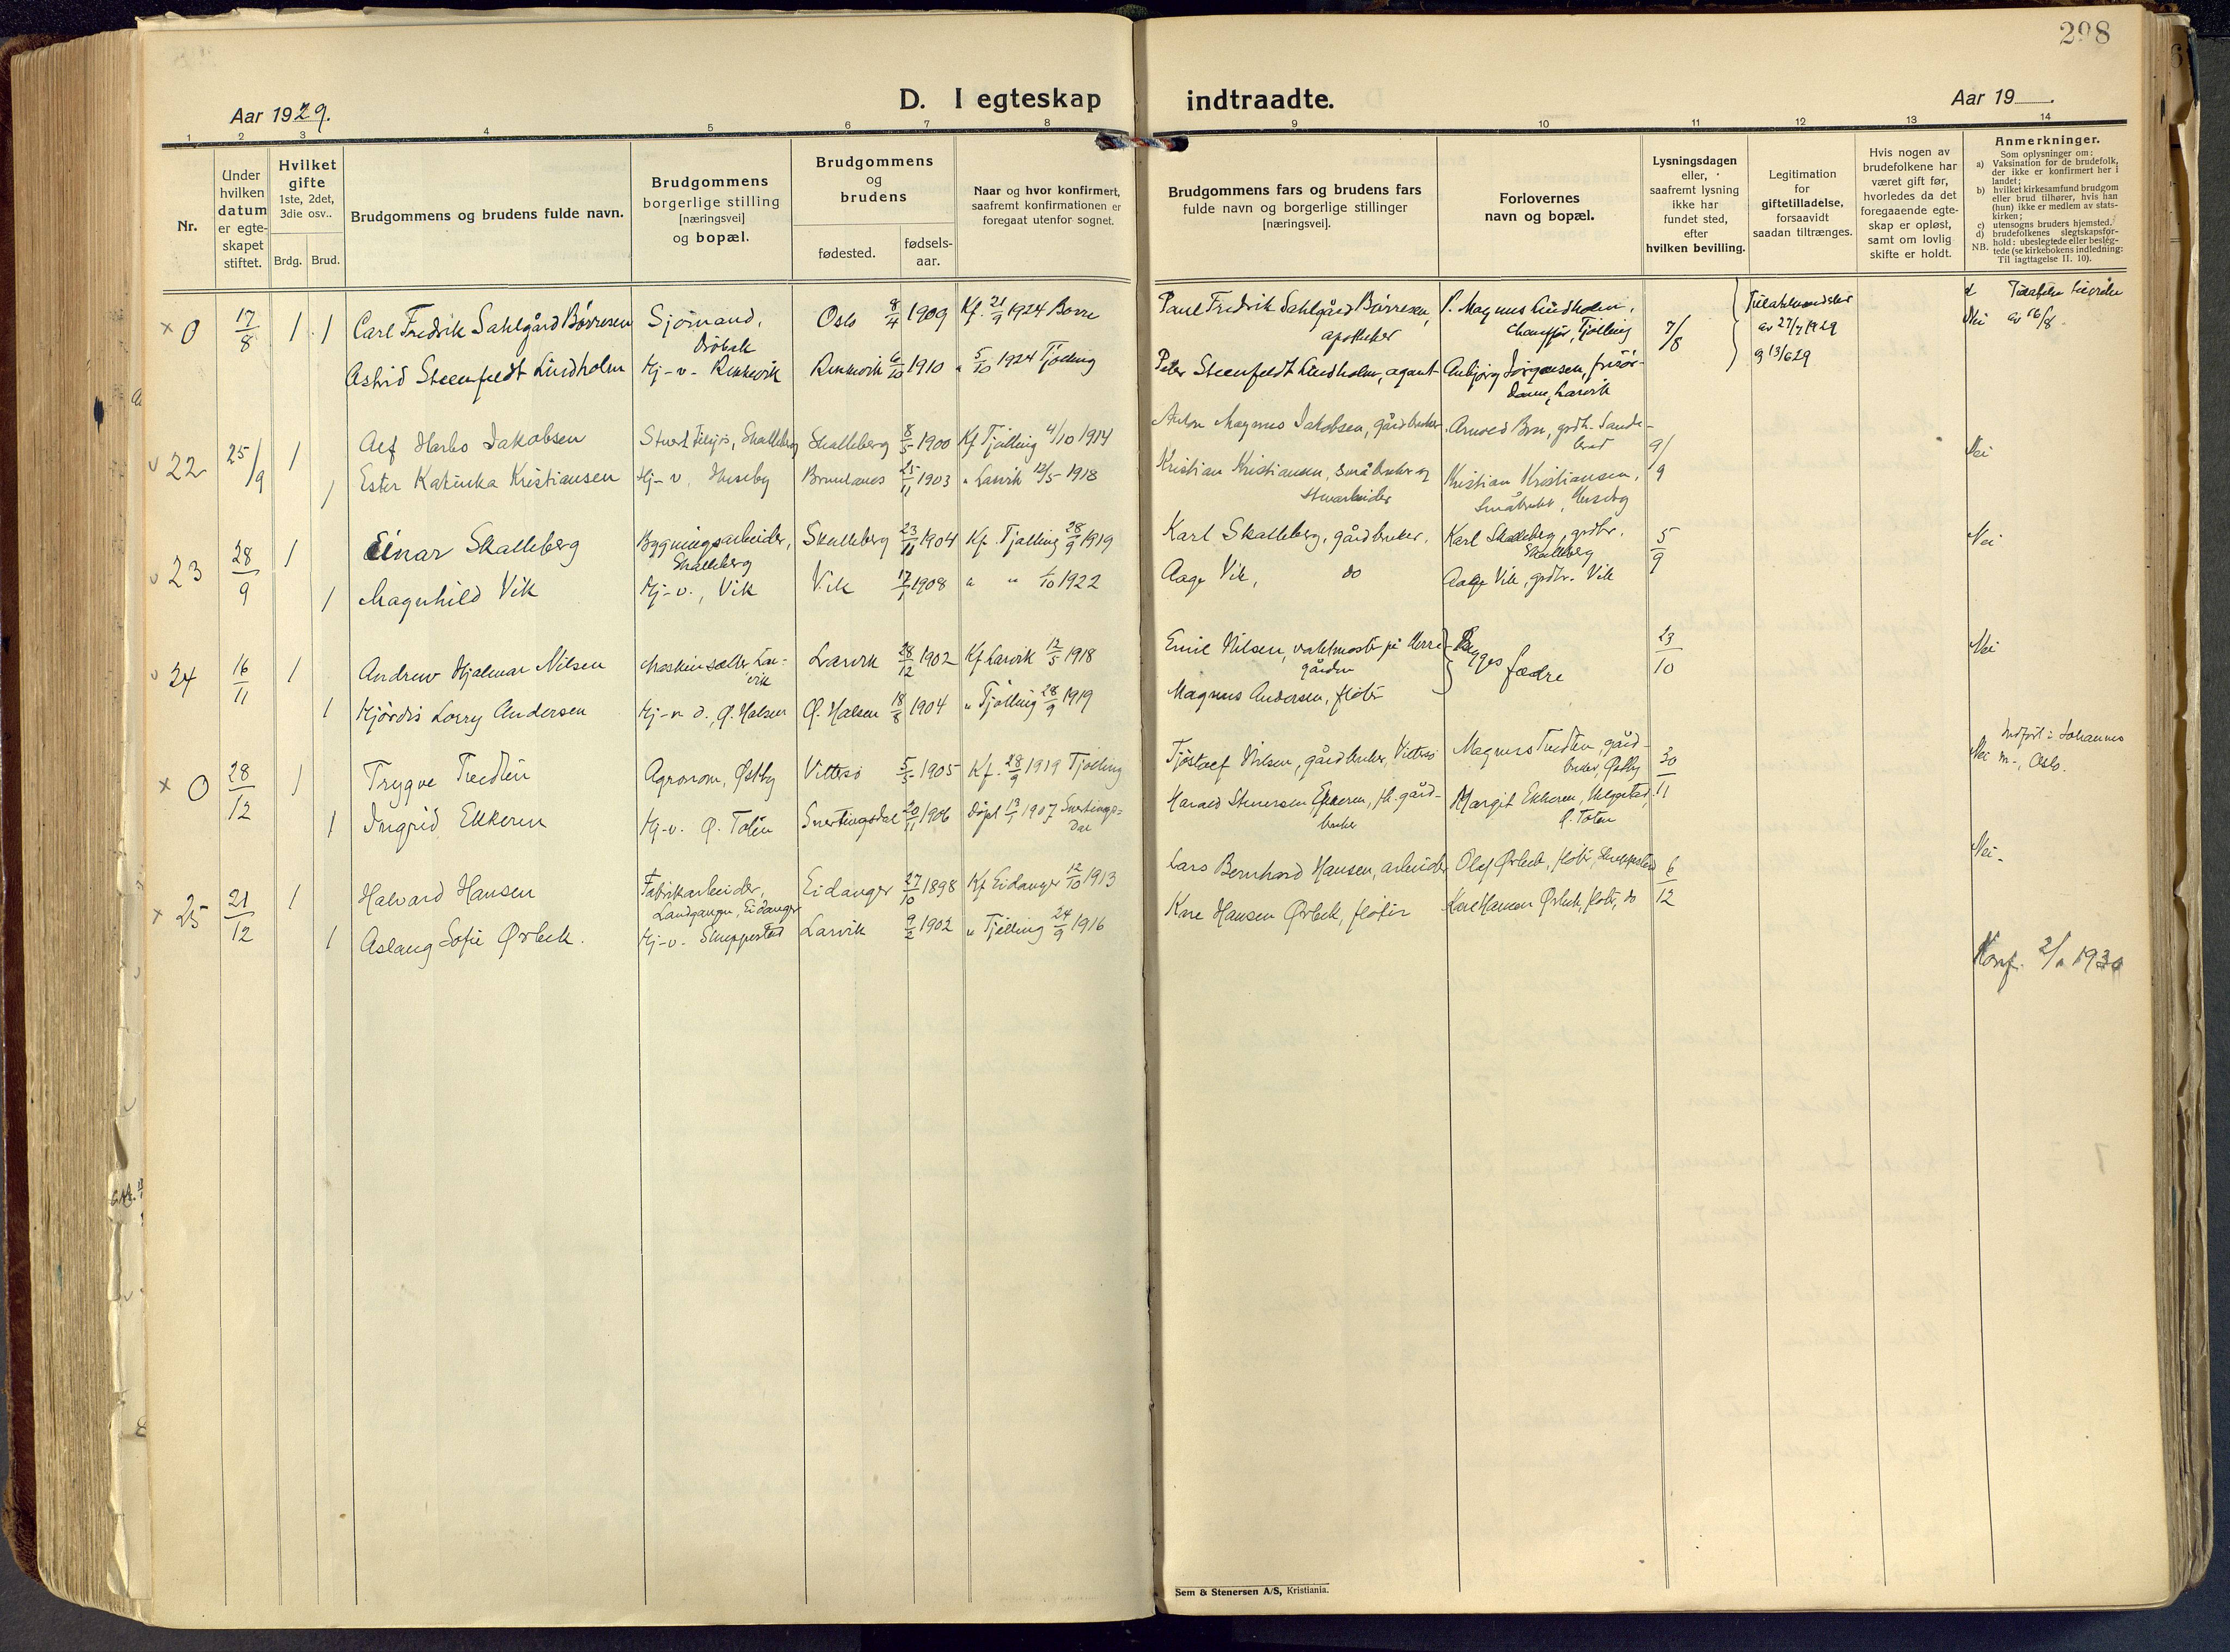 298
Aar 1929.
D. I egteskap indtraadte.
Aar 19___.
1 2 3 4 5 6 7 8 9 10 11 12 13 14
Nr.
Under hvilken datum er egteskapet stiftet.
Hvilket gifte 1ste, 2det, 3die osv..
Brdg. Brud.
Brudgommens og brudens fulde navn.
Brudgommens borgerlige stilling [næringsvei] og bopæl.
Brudgommens og brudens
fødested.
fødsels-aar.
Naar og hvor konfirmert, saafremt konfirmationen er foregaat utenfor sognet.
Brudgommens fars og brudens fars fulde navn og borgerlige stillinger [næringsvei].
Forlovernes navn og bopæl.
Lysningsdagen eller, saafremt lysning ikke har fundet sted, efter hvilken bevilling.
Legitimation for giftetilladelse, forsaavidt saadan tiltrænges.
Hvis nogen av brudefolkene har været gift før, hvorledes da det foregaaende egteskap er opløst, samt om lovlig skifte er holdt.
Anmerkninger.
Som oplysninger om:
a) Vaksination for de brudefolk, der ikke er konfirmert her i landet;
b) hvilket kirkesamfund brudgom eller brud tilhører, hvis han (hun) ikke er medlem av statskirken;
c) utensogns bruders hjemsted.
d) brudefolkenes slegtskapsforhold: ubeslegtede eller beslegtede (se kirkebokens indledning:
NB. Til iagttagelse II. 10).
x 0 17/8 1 1 Carl Fredrik Sahlgård Børresen Sjømand, Drøbak Oslo 8/4 1909 Kf. 21/9 1924 Borre
Paul Fredrik Sahlgård Børresen, apotheker P. Magnus Lindholm, chauffør, Tjølling 7/8 av 27/7 1929 Nei av 16/8
Astrid Steenfeldt Lindholm Hj-v. Rekkevik Rekkevik 6/10 1910 " 5/10 1924 Tjølling
Peter Steenfeldt Lindholm, agent Anbjørg Jørgensen, frisørdame, Larvik 9 13/6 29
v 22 25/9 1 Alf Harbo Jakobsen Skalleberg Skalleberg 8/5 1900 Kf Tjølling 4/10 1914
Anton Magnus Jakobsen, gårdbruker. 9/9 Nei
1 Ester Katinka Kristiansen Hj-v. Huseby Brunlanes 25/11 1903 " Larvik 12/5 1918
Kristian Kristiansen, småbruker og Kristian Kristiansen, småbruker, Huseby
v 23 28/9 1 Einar Skalleberg Bygningsarbeider, Skalleberg Skalleberg 23/11 1904 Kf. Tjølling 28/9 1919
Karl Skalleberg, gårdbruker. Karl Skalleberg, grdbr. Skalleberg 5/9 Nei
1 Magnhild Vik Hj-v., Vik Vik 17/7 1908 " " 1/10 1922
Aage Vik, do Aage Vik, grdbr. Vik
v 24 16/11 1 Andrew Hjalmar Nilsen Larvik Larvik 28/12 1902 Kf Larvik 12/5 1918
Emil Nilsen, vaktmester på Herregården Begges fædre 23/10 Nei
1 Hjørdis Lorry Andersen Ø. Halsen Ø. Halsen 18/8 1904 " Tjølling 28/9 1919
Magnus Andersen, fløter
x 0 28/12 1 Trygve Tvedten Agronom, Østby Vittersø 5/5 1905 Kf. 28/9 1919 Tjølling
Tjøstolf Nilsen, gårdbruker, Vittersø Magnus Tvedten gårdbruker, Østby 30/11 Nei Indført i Johannes m-, Oslo.
1 Ingrid Ekkeren Hj-v. Ø. Toten Snertingdal 20/11 1906 Døpt 13/1 1907 Snertingdal
Harald Stenersen Ekkeren, fh. gårdbruker Margit Ekkeren, Ø. Toten
x 25 21/12 1 Halvard Hansen Fabrikarbeider, Landgangen, Eidanger Eidanger 27/10 1898 Kf Eidanger 12/10 1913
Lars Bernhard Hansen, arbeider Olaf Ørbek, fløter, Skreppestad 6/12 Nei-
1 Aslaug Sofie Ørbek. Hj-v. Skreppestad Larvik 9/2 1902 " Tjølling 24/9 1916
Kare Hansen Ørbek, fløter Kare Hansen Ørbek, fløter, do
Konf. 2/1 1930
Sem & Stenersen A/S, Kristiania.